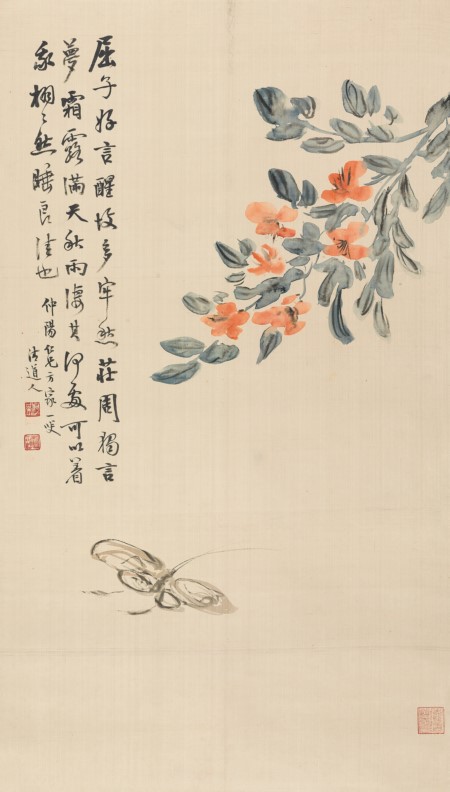 屈子好言醒故多牢愁莊周獨言
夢霜露滿天秋雨凄其何處可以着
我栩〻然睡良佳也 仲陽仁兄方家一哂
清道人